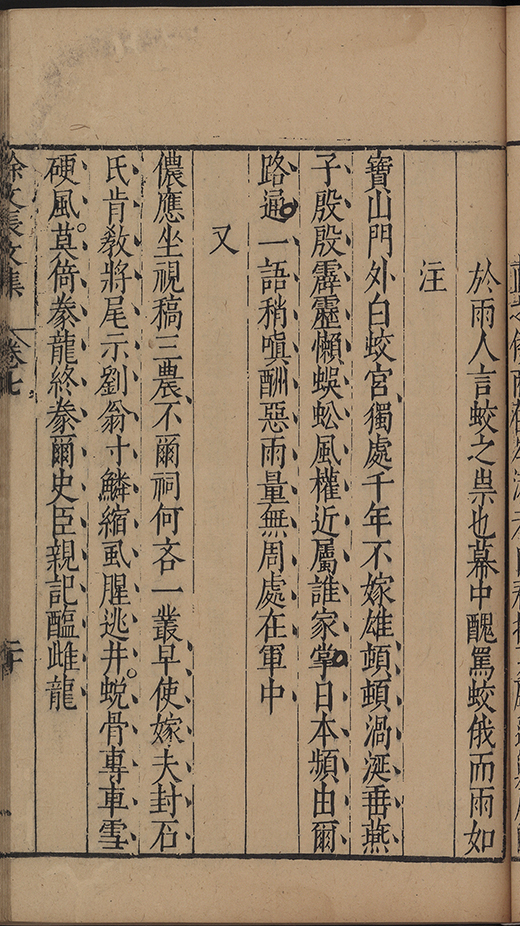 於雨人言蛟之祟也幕中醜罵蛟俄而雨如
注
寶山門外白蛟宮獨處千年不嫁雄頓頓渦涎垂燕
子殷殷霹靂懶蜈蚣風權近屬誰家掌日本頻由爾
路通一語稍嗔酬惡雨量無周處在軍中
又
儂應坐視稿三農不爾祠何吝一叢早使嫁夫封石
氏肯敎將尾示劉翁寸鱗縮虱腥逃井蛻骨專車雪
硬風莫倚豢龍終豢爾史臣親記醢雌龍
徐文長文集 卷七 二十